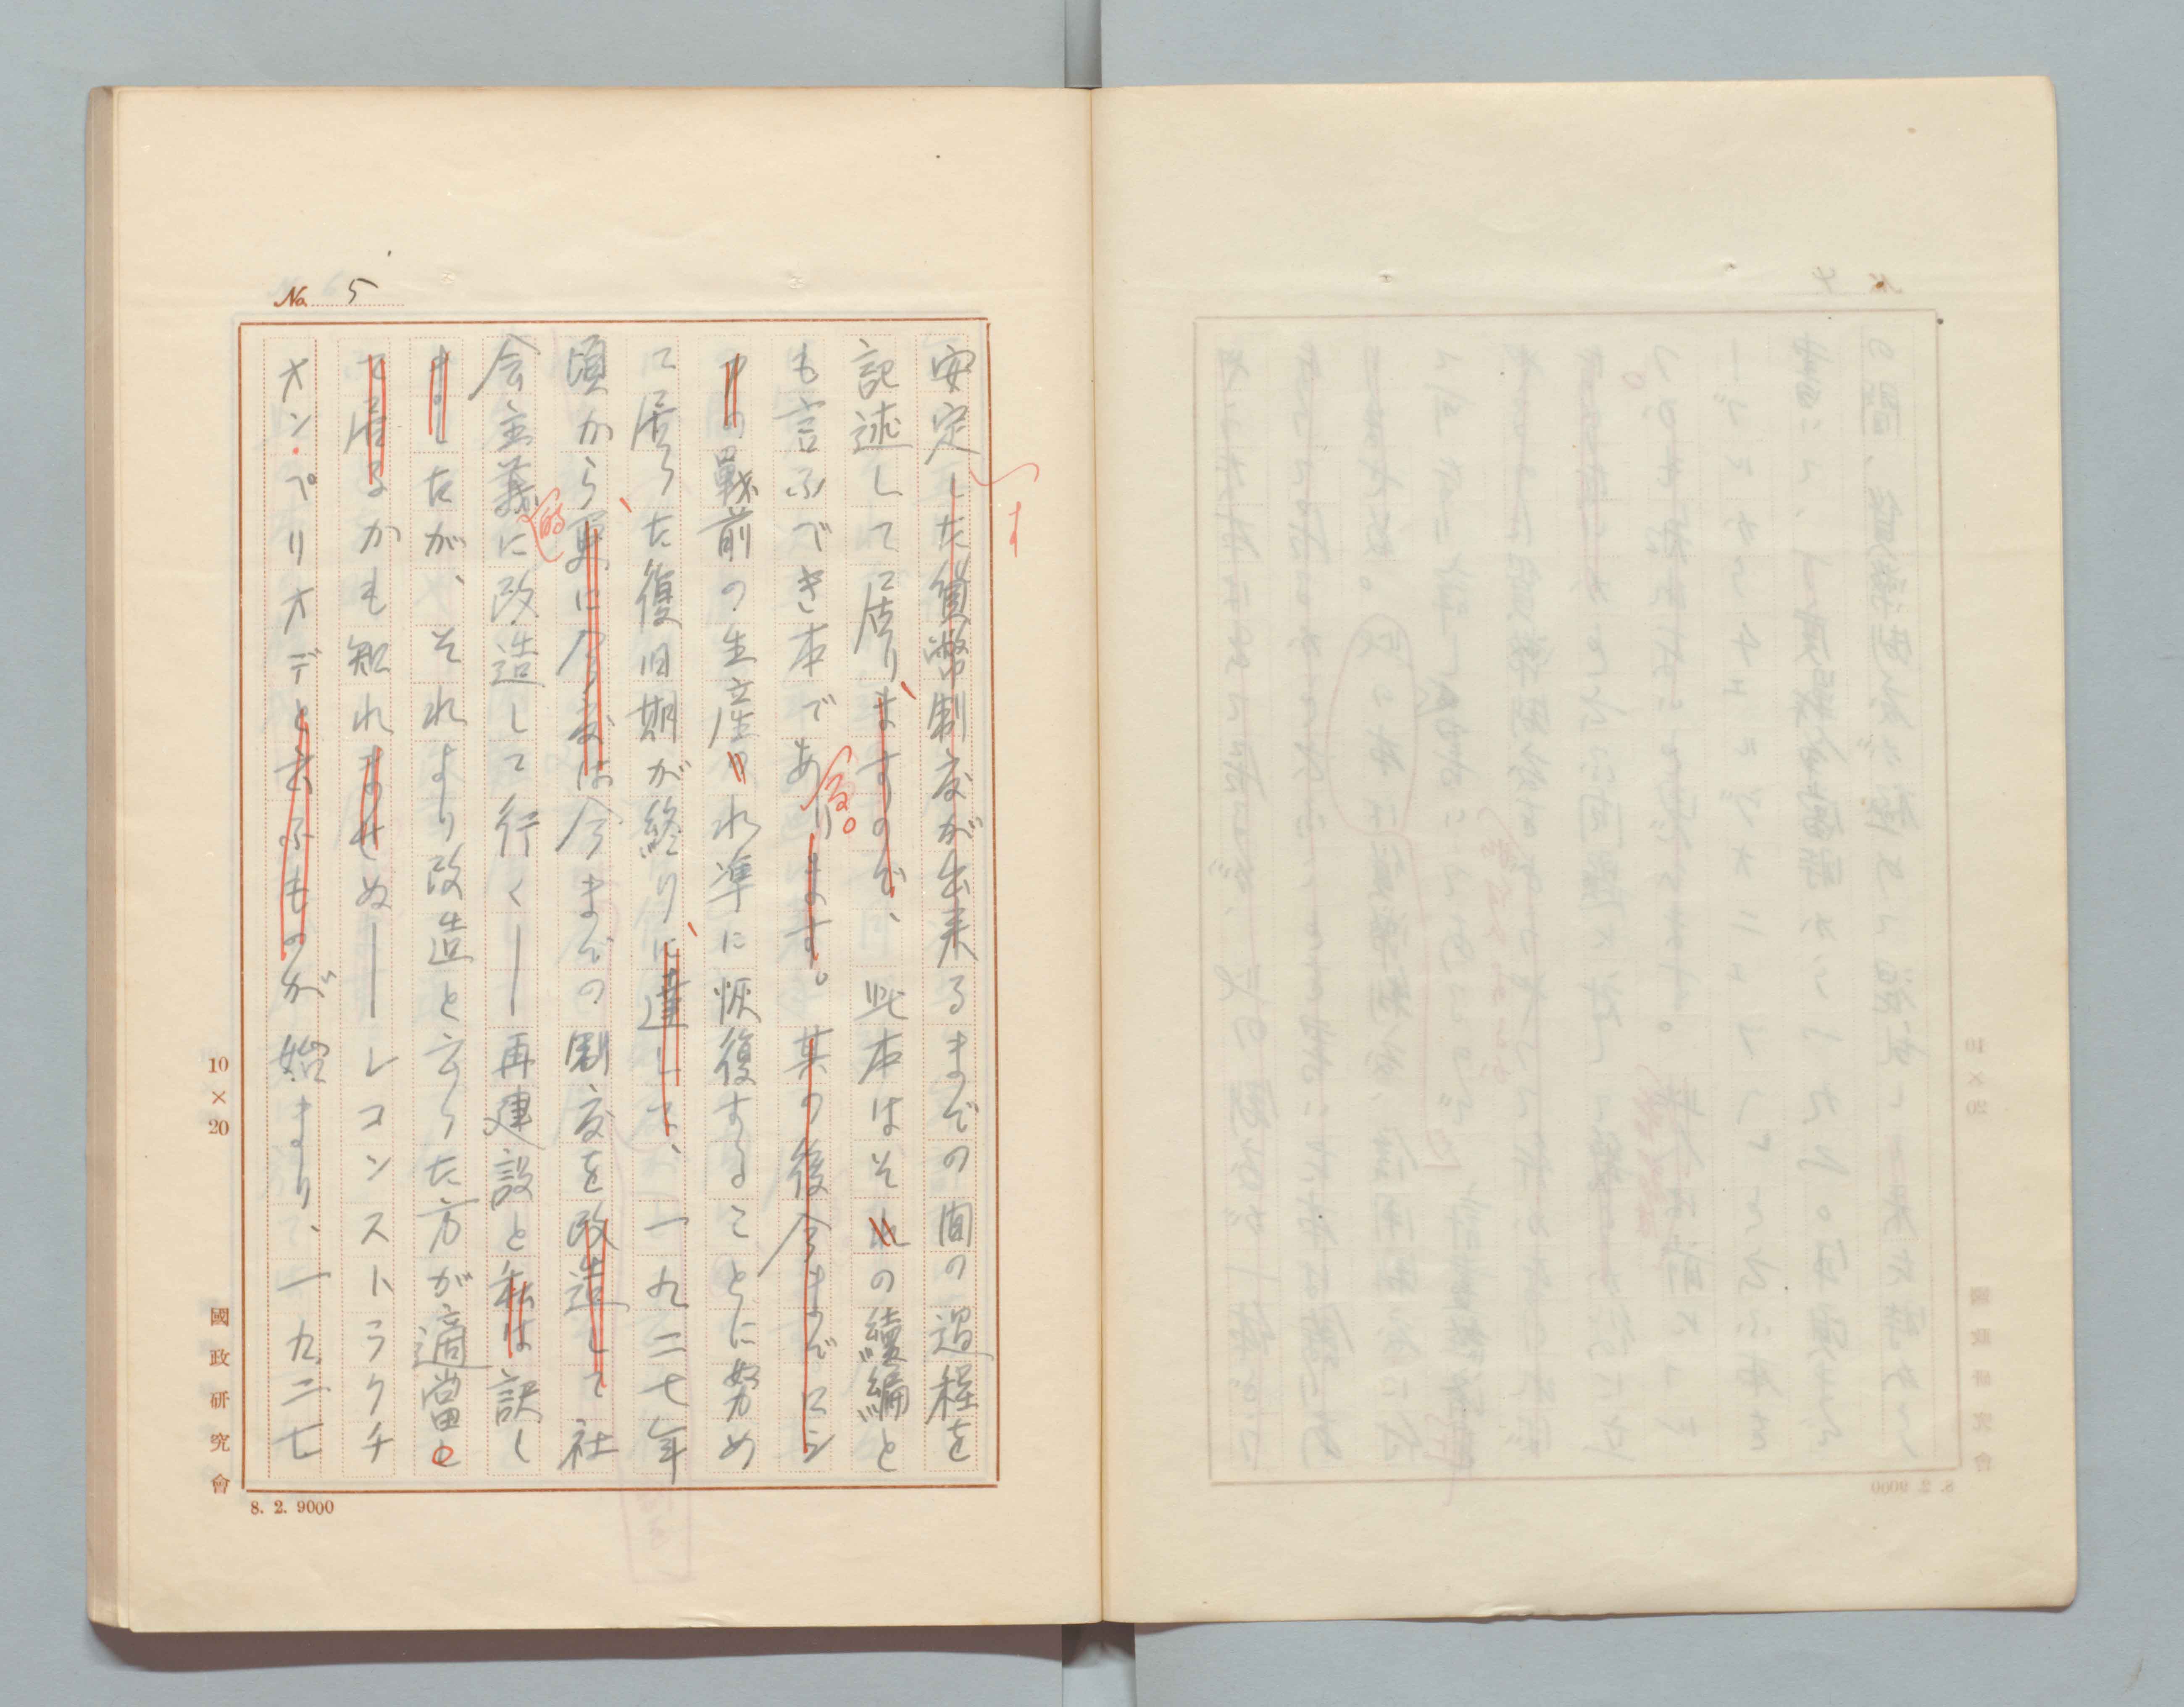 No. 5
安定した貨幣制度が出来るまでの間の過程を
す
記述して居りますので、此本はそれの續編と
も言ふべき本であります。其の後今までにシ
る。
の戰前の生産水準に恢復することに努め
て居った復旧期が終りに達して、一九二七年
頃から更に今度は今までの制度を改造して社
会主義に改造して行く――再建設と私は訳し
的
ましたが、それより改造と云った方が適當と
て居るかも知れませぬ――レコンストラクチ
オン・ペリオデと云ふものが始まり、一九二七
10×20
國政研究會
8. 2. 9000